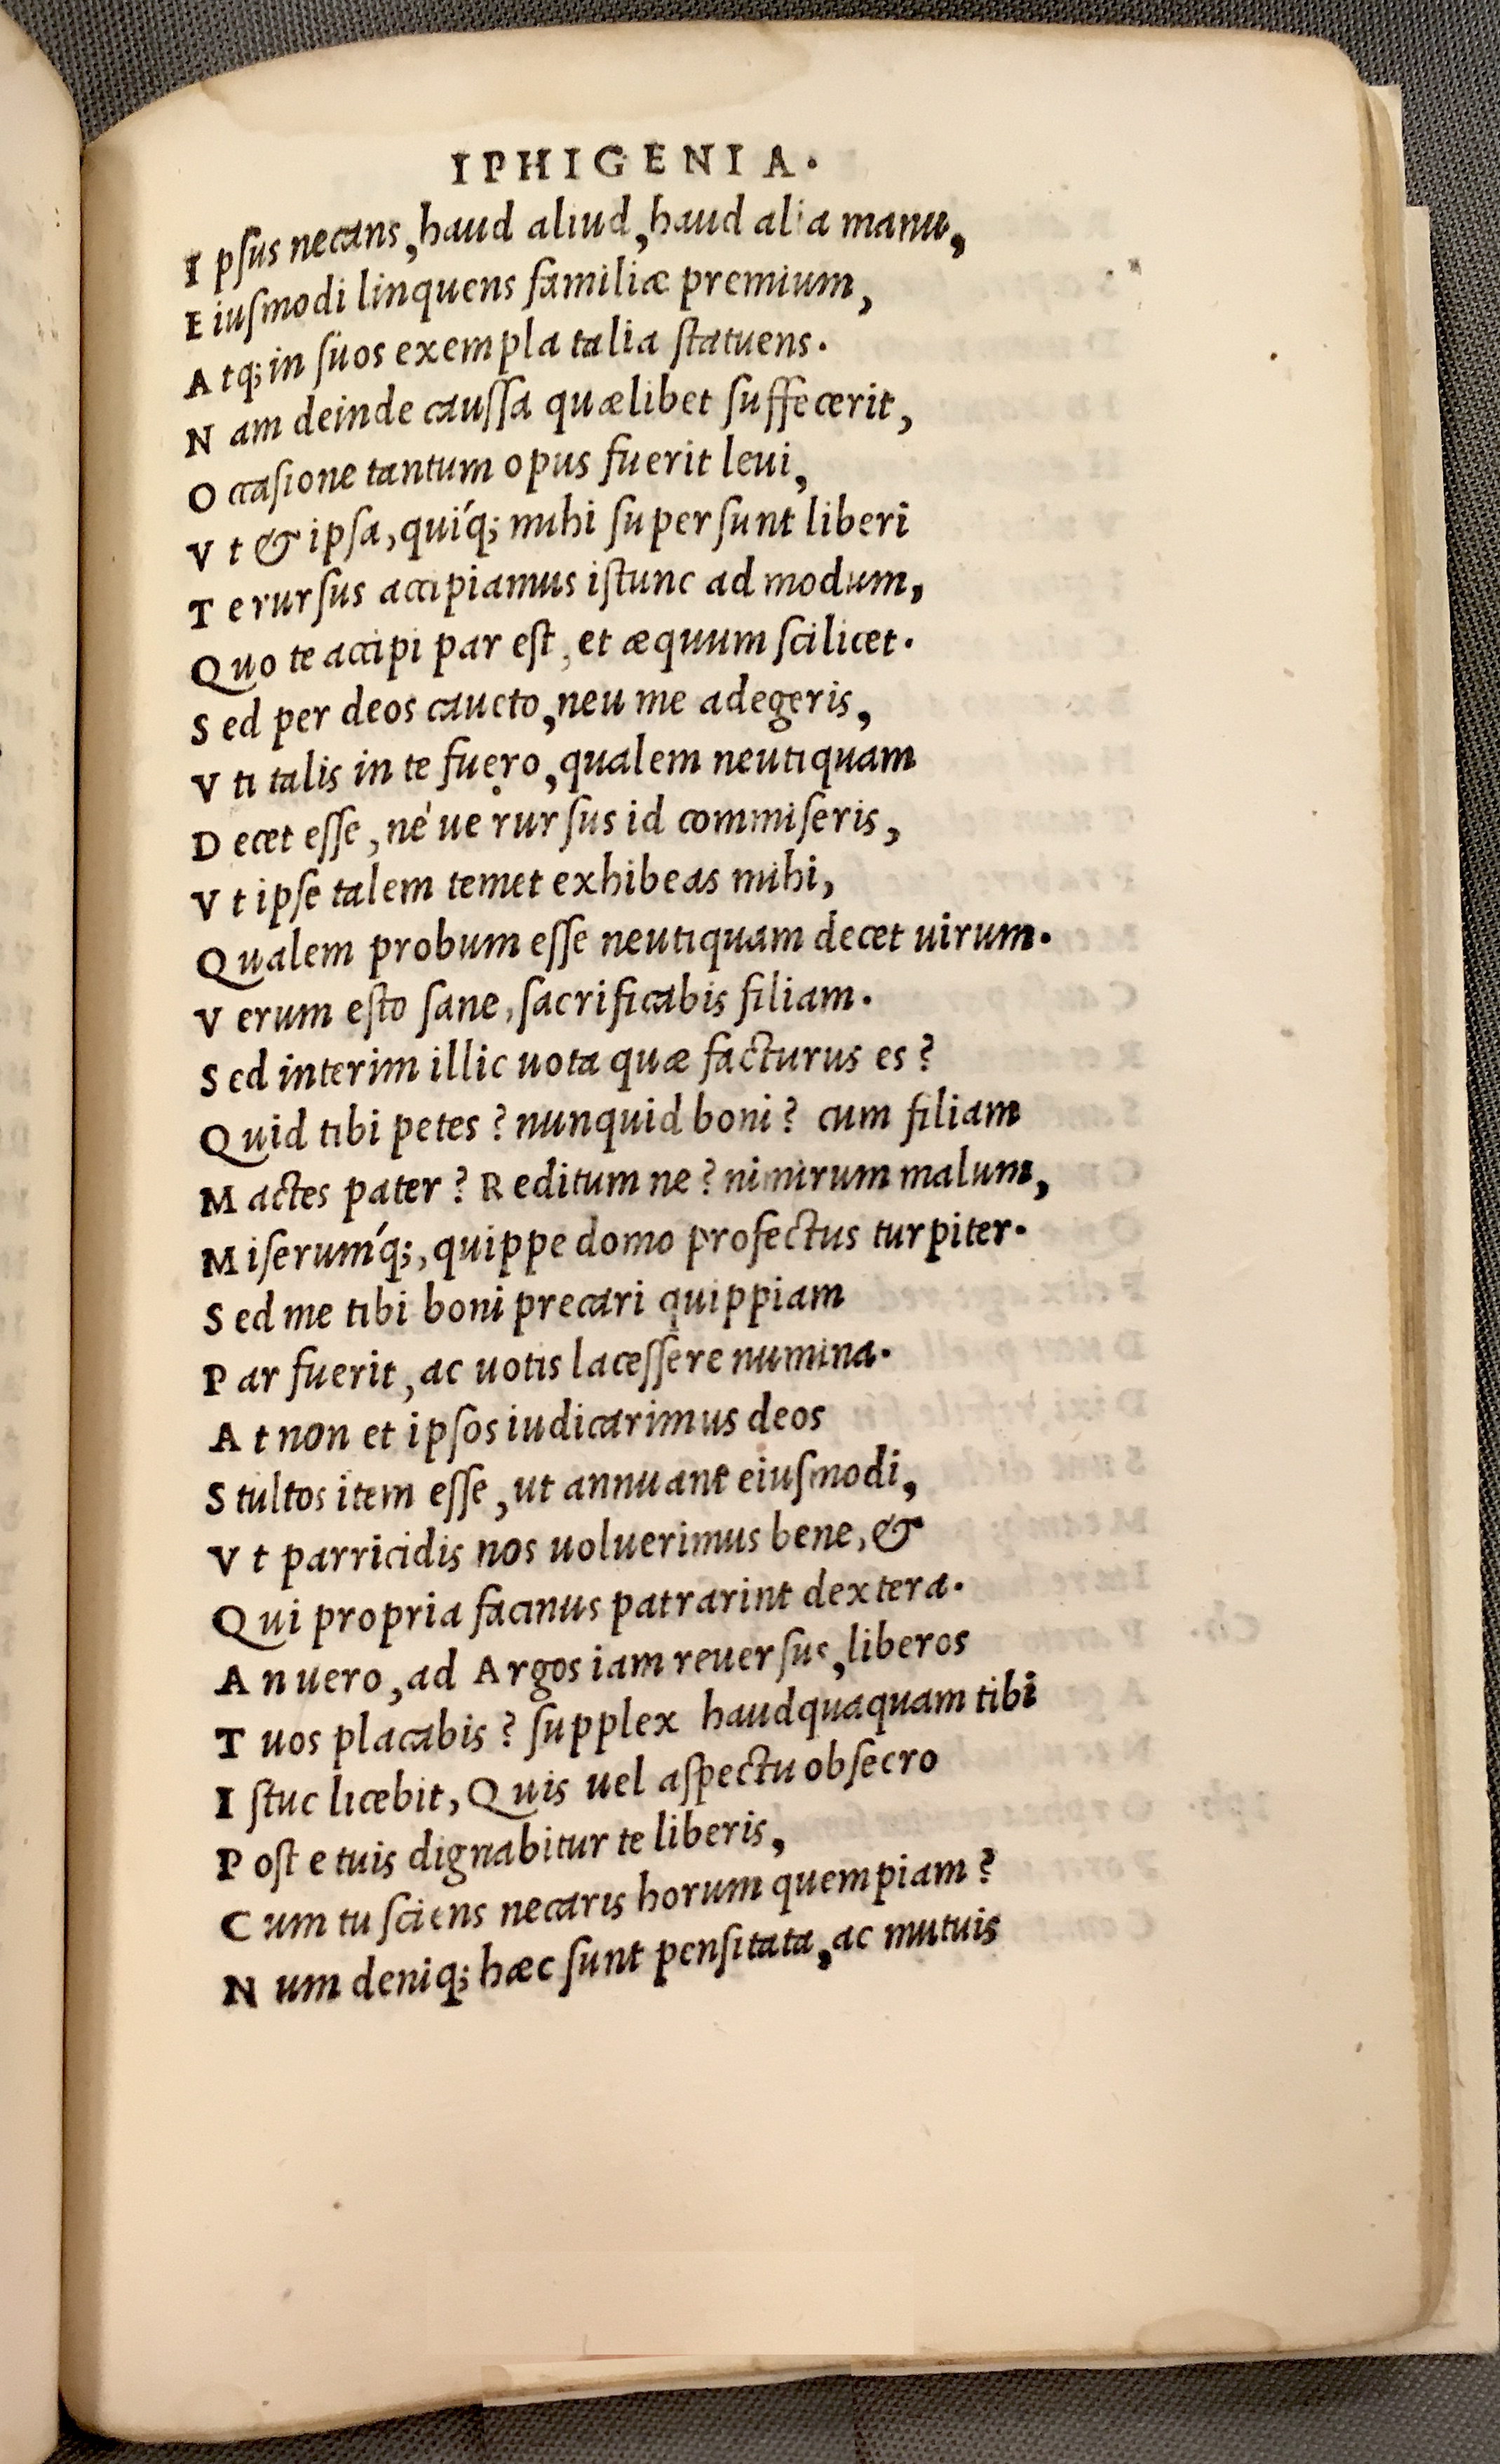 IPHIGENIA.
Ipsus necans, haud aliud, haud alia manu,
Eiusmodi linquens familiæ premium,
Atq; in suos exempla talia statuens.
Nam deinde caussa quælibet suffecerit,
Occasione tantum opus fuerit leui,
Vt & ipsa, quíq; mihi supersunt liberi
Te rursus accipiamus istunc ad modum,
Quo te accipi par est, et æquum scilicet.
Sed per deos caueto, neu me adegeris,
Vti talis in te fuero, qualem neutiquam
Decet esse, né ue rursus id commiseris,
Vt ipse talem temet exhibeas mihi,
Qualem probum esse neutiquam decet uirum.
Verum esto sane, sacrificabis filiam.
Sed interim illic uota quæ facturus es?
Quid tibi petes? nunquid boni? cum filiam
Mactes pater? Reditum ne? nimirum malum,
Miserumq́;, quippe domo profectus turpiter.
Sed me tibi boni precari quippiam
Par fuerit, ac uotis lacessere numina.
At non et ipsos iudicarimus deos
Stultos item esse, ut annuant eiusmodi,
Vt parricidis nos uoluerimus bene, &
Qui propria facinus patrarint dextera.
An uero, ad Argos iam reuersus, liberos
Tuos placabis? supplex haudquaquam tibi
Istuc licebit, Quis uel aspectu obsecro
Post e tuis dignabitur te liberis,
Cum tu sciens necaris horum quempiam?
Num deniq; hæc sunt pensitata, ac mutuis